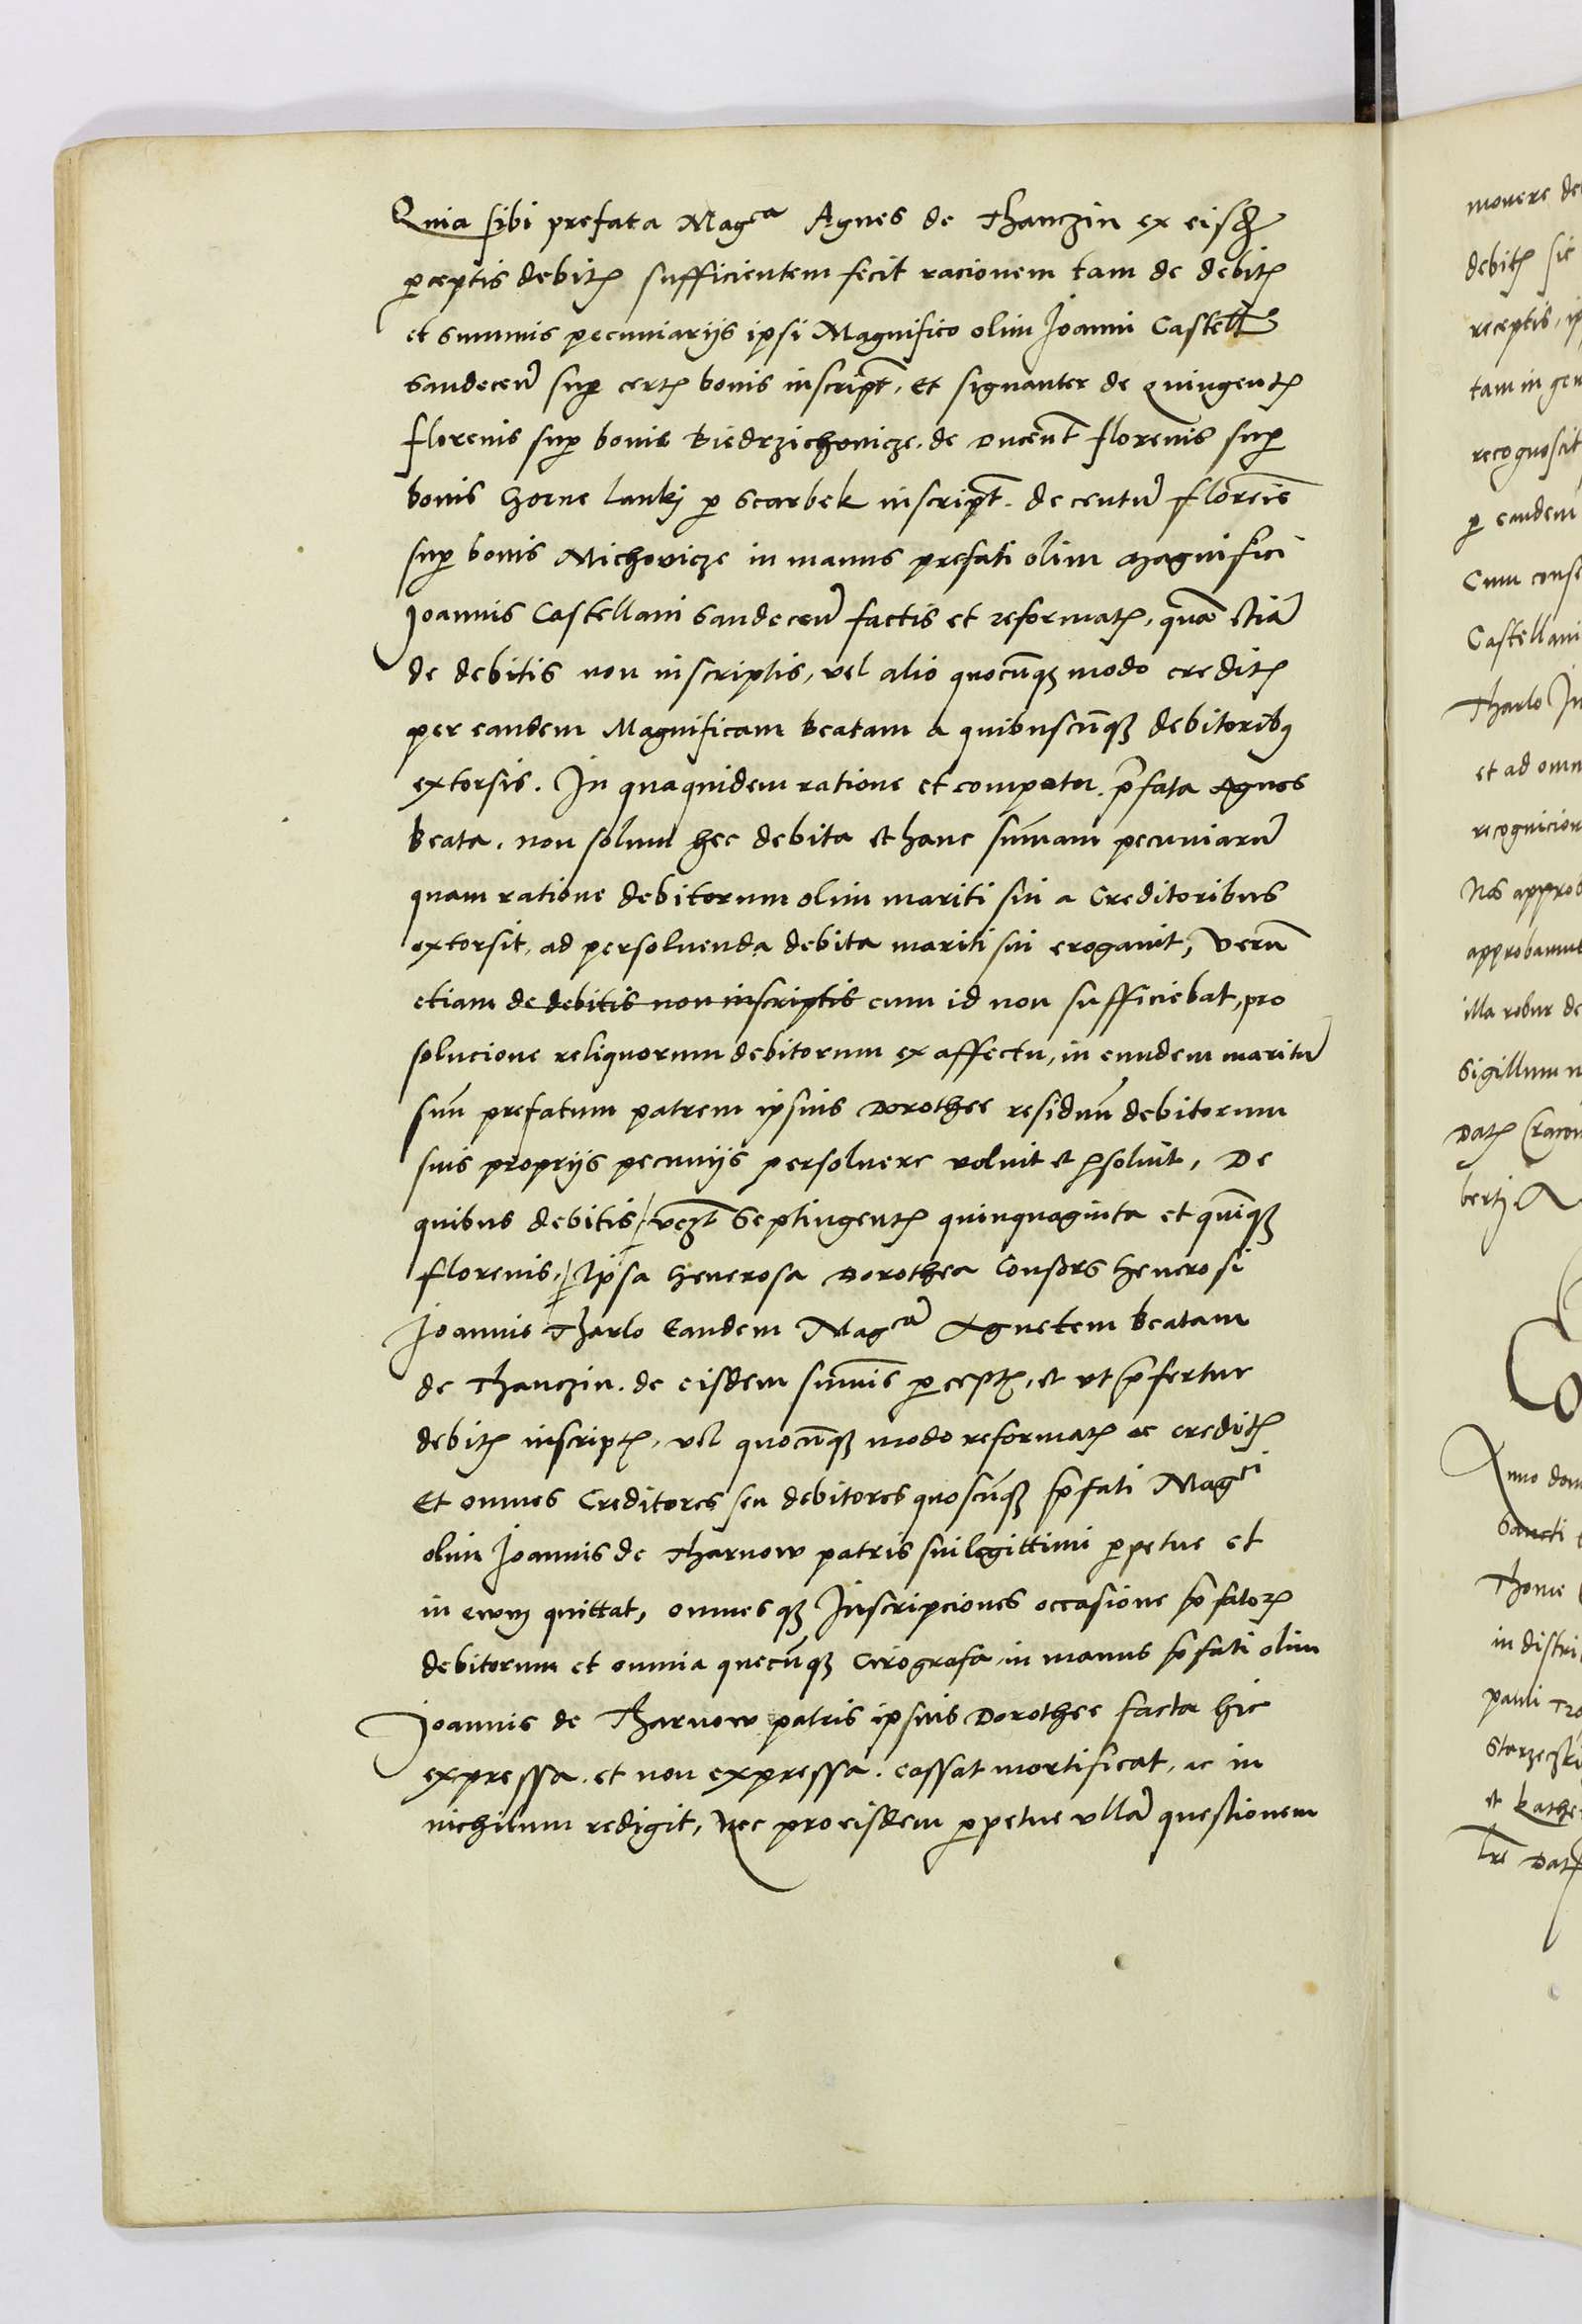 Quia sibi prefata Magca Agnes de Thanczin ex eisd
perceptis debit sufficientem fecit racionem tam de debit
et summis pecuniarijs ipsi Magnifico olim Joanni Castell
Sandecen sup cert bonis inscript, et signanter de quingent
florenis sup bonis Biedrzichovicze. de ducent florenis sup
bonis Gorne lanki p Scarbek inscript. de centu floreis
sup bonis Michovicze in manus prefati olim Magnifici
Joannis Castellani Sandecen factis et reformat, qua etia
de debitis non inscriptis, vel alio quocunq modo credit
per eandem Magnificam beatam a quibuscunq debitorib
extorsis. In quaquidem ratione et computu. pfata Agnes
beata. non solum hec debita et hanc sumam pecuniaru
quam ratione debitorum olim mariti sui a Creditoribus
extorsit, ad persolvenda debita mariti sui erogavit, veru
etiam de debitis non inscriptis cum id non sufficiebat, pro
solucione reliquorum debitorum ex affectu, in eundem maritu
suu prefatum patrem ipsius Dorothee residuu debitorum
suis proprijs pecunijs persolvere voluit et psolvit, De
quibus debitis, vezt Septingent quinquaginta et quinq
florenis, Ipsa Generosa Dorothea Consors Generosi
Joannis Tharlo Eandem Magca Agnetem beatam
de Thanczin. de eisdem sumis pcept, et ut pfertur
debit inscript, vel quocunq modo reformat ac credit
Et omnes Creditores seu debitores quoscunq pfati Magci
olim Joannis de Tharnow patris sui legittimi ppetue et
in ewm quittat, omnesq Inscripciones occasione pfator
debitorum et omnia quecunq Cirografa in manus pfati olim
Joannis de Tharnow patris ipsius Dorothee facta hic
expressa. et non expressa. cassat mortificat, ac in
nichilum redigit, Nec pro eisdem ppetue ulla questionem
movere de
debit sic
receptis, ip
tam in gen
recognoscit
p eandem
Cum conse
Castellani
Tharlo In
et ad omn
recognicion
Nos approb
approbamus
illa robur de
Sigillum n
Dat Cracov
berti A
Co
Anno dom
Sancti
Thome
in distri
pauli
Starzechi
et kathe
Lre Dat